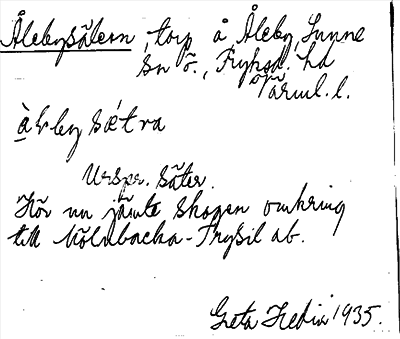 Ålebysätern, torp å Åleby, Sunne
sn ö., Fryksd. hd
Värml. l.
Urspr. säter.
Hör nu jämte skogen omkring
till Mölnbacka-Trysil ab.
Greta Hedin 1935.